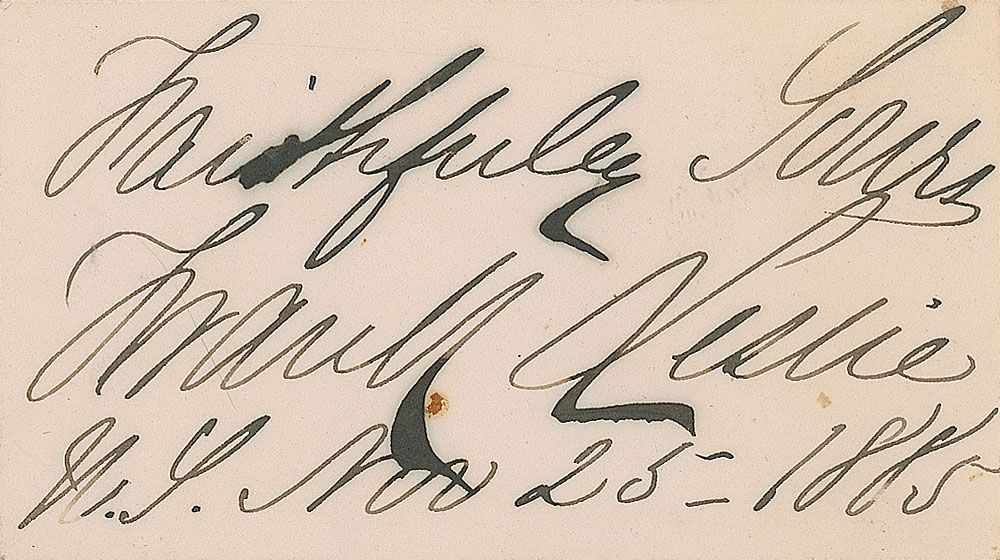 Faithfuly Yours
Frank Leslie
N.Y. Nov 25 - 1885